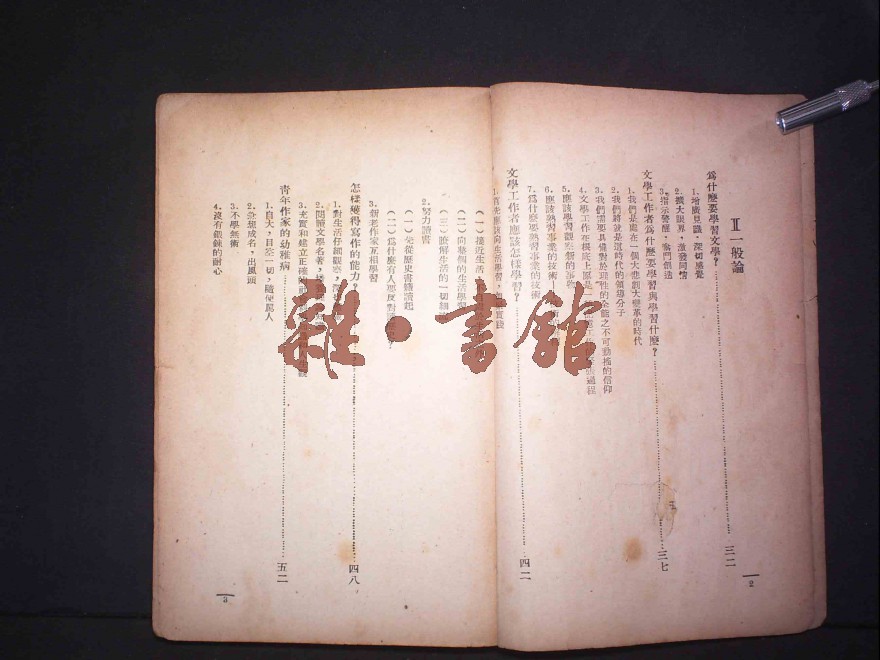 Ⅱ 一般論
為什麼要學習文學?……三二
1. 增廣見識,深切感覺
2. 擴大眼界,激發同情
3. 指示發醒,奮鬥創造
文學工作者為什麼要學習與學習什麼?……三七
1. 我們是處在一個大悲劇大變革的時代
2. 我們將就是新時代的領導分子
3. 我們需要具備對於同性的全能之不可動搖的信仰
4. 文學工作在根底上是
5. 應該學習觀察新的事物
6. 應該熟習事業的技術
7. 為什麼要學習事業的技術
文學工作者應該怎樣學習?……四二
1. 首先應該向生活學習
(一)接近生活
(二)向整個的生活學習
(三)瞭解生活的一切細
2. 努力讀書
(一)先從歷史書籍讀起
(二)為什麼有人要反對
3. 新老作家互相學習
怎樣獲得寫作的能力?……四八
1. 對生活仔細觀察,
2. 閱讀文學名著,
3. 充實和建立正確的
青年作家的幼稚病……五二
1. 自大,目空一切,隨便罵人
2. 急想成名,出風頭
3. 不學無術
4. 沒有鍛鍊的耐心
2
3
雜·書館